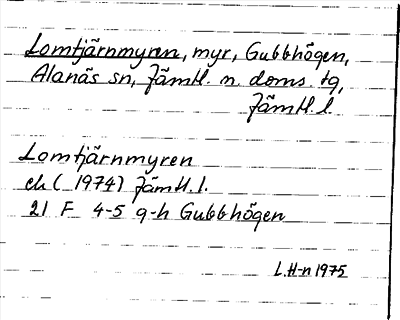 Lomtjärnmyren, myr, Gubbhögen,
Alanäs sn, Jämtl. n. doms. tg,
Jämtl. l.
Lomtjärnmyren
ek (1974) Jämtl. l.
21 F 4-5 g-h Gubbhögen
L.H-n 1975